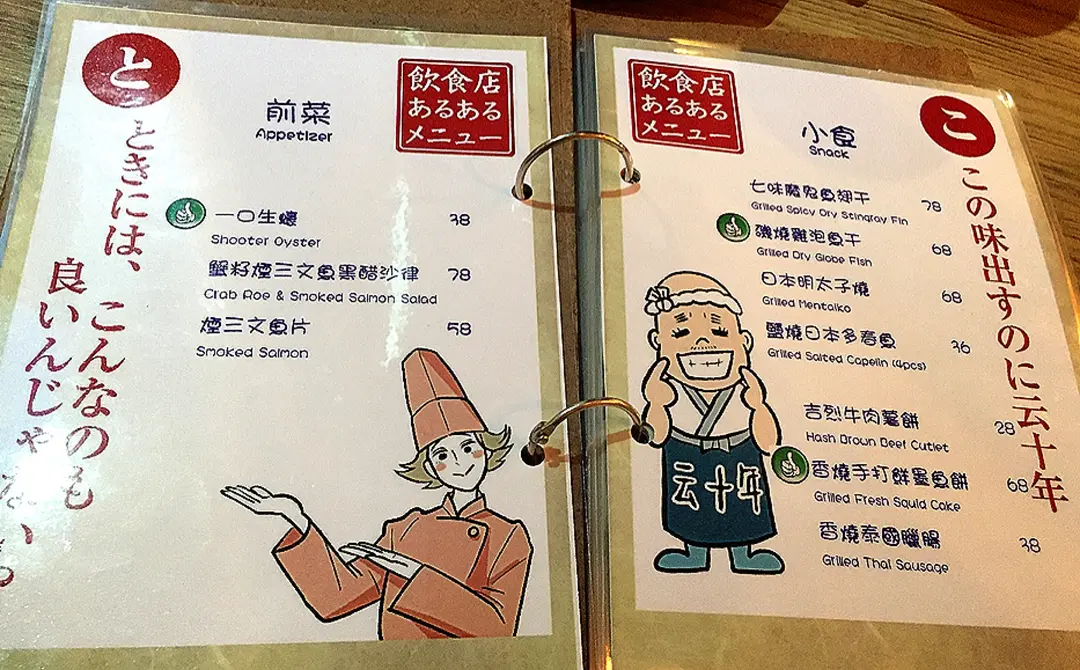 と
ときには、
こんなのも
良いんじゃな
前菜
Appetizer
飲食店
あるある
メニュー
一口生蠔 38
Shooter Oyster
蟹籽煙三文魚黑醋沙律 78
Crab Roe & Smoked Salmon Salad
煙三文魚片 58
Smoked Salmon
飲食店
あるある
メニュー
小食
Snack
こ
この味出すのに云十年
七味魔鬼魚翅干 78
Grilled Spicy Dry Stingray Fin
磯燒雞泡魚干 68
Grilled Dry Globe Fish
日本明太子燒 68
Grilled Mentaiko
鹽燒日本多春魚 36
Grilled Salted Capelin (4pcs)
吉烈牛肉薯餅 28
Hash Brown Beef Cutlet
香燒手打鮮墨魚餅 68
Grilled Fresh Squid Cake
香燒泰國臘腸 38
Grilled Thai Sausage
云十年